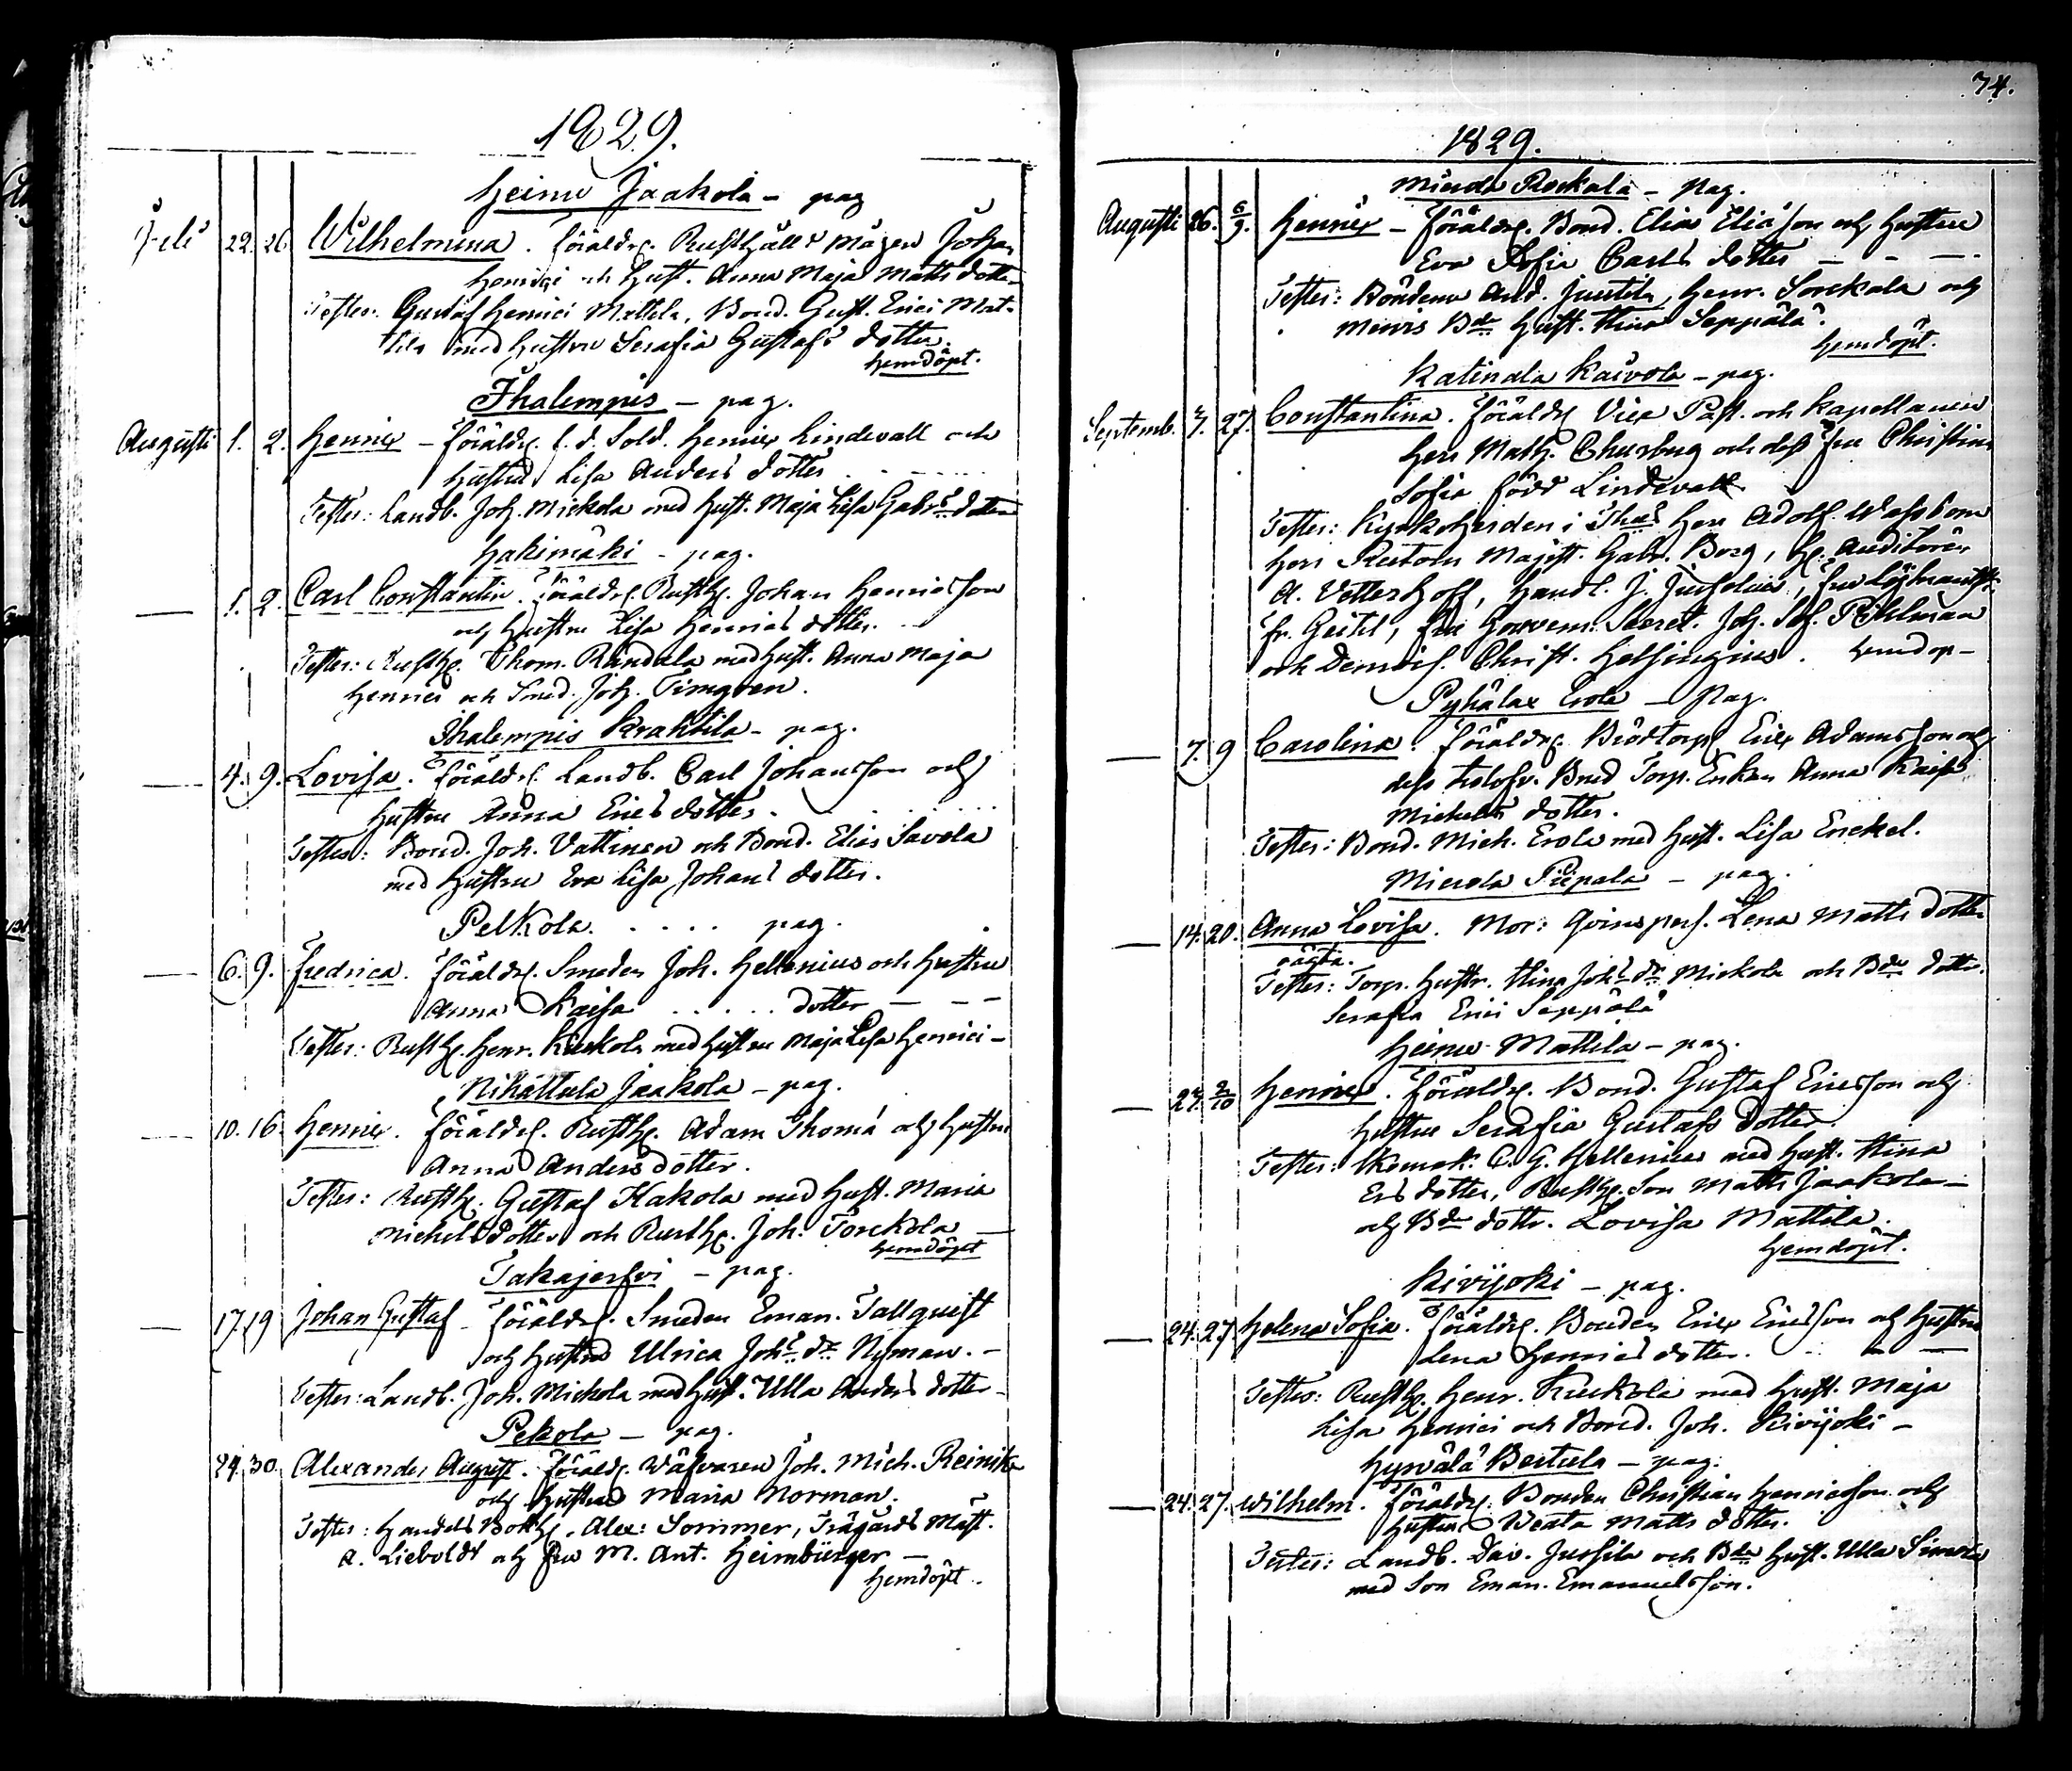 1829.
Heinu Jaakola – pag
Juli 22. 26 Wilhelmina. Föräldr. Rusthåll. Mågen Johan
Henrici och Hust. Anna Maja Matts dotter
Testes: Gustaf Henrici Mattila, Bond. Gust. Erici Mat-
tila med Hustru Serafia Gustafs dotter.
hemdöpt.
Ihalempis – pag.
Augusti 1. 2. Henric – Föräldr. f.d. Sold. Henric Lindevall och
hustru Lisa Anders dotter
Testes: Landb. Joh. Mickola med Hust. Maja Lisa Gabr:s dotter
Hakimäki – pag.
— 1. 2. Carl Constantin. Föräldr. Rusth. Johan Henricsson
och Hustru Lisa Henrics dotter.
Testes: Rusth. Thom. Randala med Hust. Anna Maja
Henrici och Smed. Joh. Timgren.
Ihalempis Krahtila – pag.
— 4. 9. Lovisa. Föräldr. Landb. Carl Johansson och
Hustru Anna Erics dotter.
Testes: Bond. Joh. Vattinen och Bond. Elias Savola
med Hustru Eva Lisa Johans dotter.
Pelkola. . . . . pag.
— 6. 9. Fredrica. Föräldr. Smeden Joh. Hellenius och Hustru
Anna Kaisa . . . . . dotter — — —
Testes: Rusth. Henr. Kuckola med Hustru Maja Lisa Henrici –
Nihattula Jaakola – pag.
— 10. 16. Henric. Föräldr. Rusth. Adam Thomæ och Hustru
Anna Anders dotter.
Testes: Rusth. Gustaf Kakola med Hust. Maria
Michels dotter och Rusth. Joh. Torckola —
hemdöpt
Takajerfvi – pag.
— 17. 19 Johan Gustaf – Föräldr. Smeden Eman. Tallquist
och Hustru Ulrica Joh:s dr Nyman. –
Testes: Landb. Joh. Mickola med Hust. Ulla Anders dotter –
Pekola – pag.
24. 30. Alexander August. Föräldr. Wäfvaren Joh. Mich. Reinike
och Hustru Maria Norman.
Testes: Handels Bokh. Alex: Sommer, Trägårds Mäst.
A. Lieboldt och Fru M. Ant. Heimbürger –
hemdöpt.
74.
1829.
Mierola Rockala – Pag.
Augusti 26. 6/9. Henric – Föräldr. Bond. Elias Eliæson och Hustru
Eva Sofia Carls dotter — - —.
Testes: Bönderne And. Juutila, Henr. Sorckala och
Mierois Bde Hust. Stina Seppälä.
hemdöpt.
Katinala Kaivola – pag.
Septemb. 7. 27. Constantina. Föräldr. Vice Past. och Kapellanen
Herr Math. Churberg och dess Fru Christina
Sofia född Lindevall
Testes: Kyrkoherden i Herr Adolf Wassbom
Herr Rectorn Magist. Gabr. Borg, H. Auditören
A. Vetterhoff, Handl. J. Juselius,
Fr. Geitel, Fru Gouvern: Secret. Joh. Sof. Pihlman
och Demois. Christ. Helsingius. hemdöp–
Pyhälax Erola – Pag.
— 7. 9 Carolina. Föräldr. Brödtorp. Eric Adamsson och
dess Bred Torp. Enkan Anna Kaisa
Michels dotter.
Testes: Bond. Mich. Erola med Hust. Lisa Enckel.
Mierola Pispala – pag.
— 14. 20. Anna Lovisa. Mor: Qvinspers. Lena Matts dotter
oäcta.
Testes: Torp. Hustr. Stina Joh:s dr Mickola och Bde dottr.
Serafia Erici Seppälä
Heinu Mattila – pag.
— 27. 2/10 Henric. Föräldr. Bond. Gustaf Ericsson och
Hustru Serafia Gustafs dotter.
Testes: Skomak. C. G. Hellenius med Hust. Stina
Ers dotter, Rusth. Son Matts Jaakola –
och Bde dottr. Lovisa Mattila.
hemdöpt.
Kivijoki – pag.
— 24. 27. Helena Sofia. Föräldr. Bonden Eric Ericsson och Hustru
Lena Henrics dotter. — —
Testes: Rusth. Henr. Kuckola med Hust. Maja
Lisa Henrici och Bond. Joh. Kivijoki –
Hyrvälä Bertula – pag.
— 24. 27. Wilhelm. Föräldr. Bonden Christian Henricsson och
Hustru Beata Matts dotter.
Testes: Landb. Dav. Jussila och Bde Hust. Ulla Simola
med Son Eman. Emanuelsson.